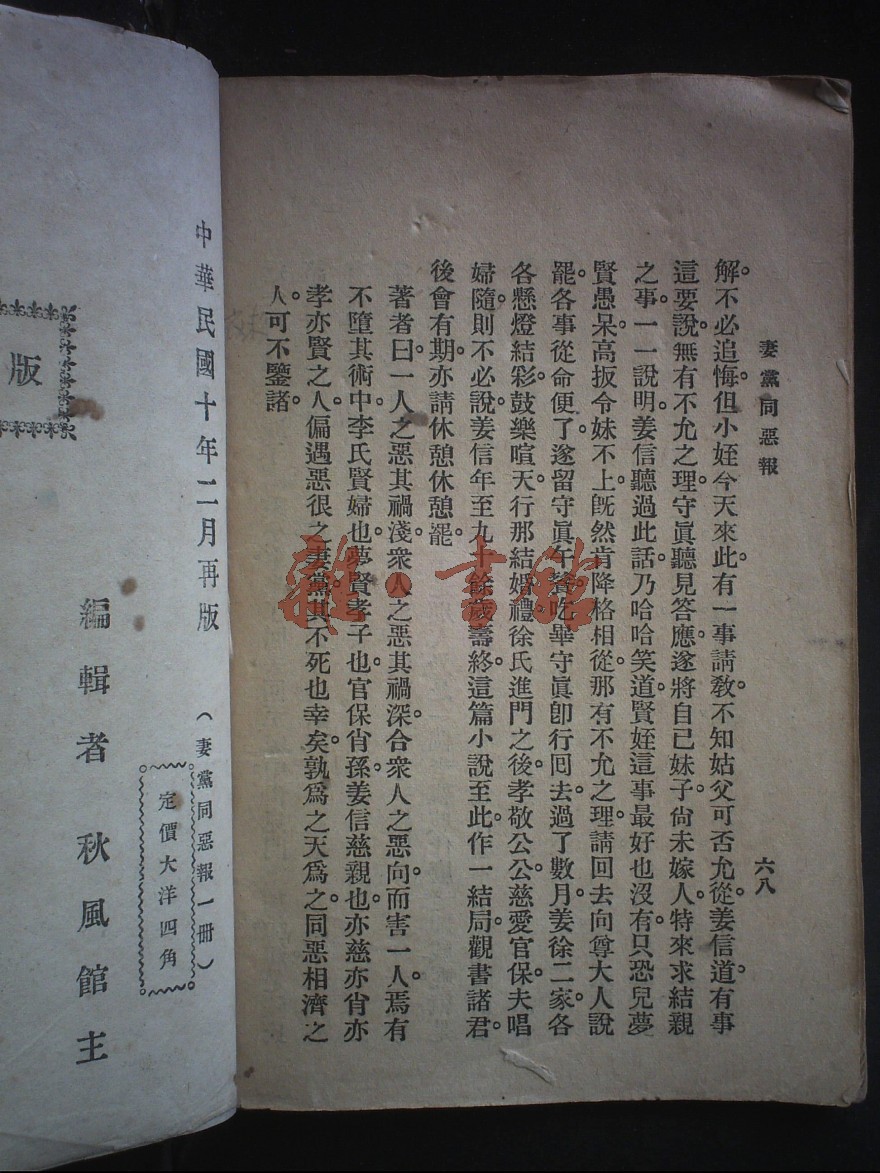 妻黨同惡報
六八
解。不必追悔。但小姪今天來此。有一事請敎。不知姑父可否允從。姜信道。有事
這要說。無有不允之理。守眞聽見答應。遂將自已妹子尙未嫁人。特來求結親
之事。一一說明。姜信聽過此話。乃哈哈笑道。賢姪這事最好也沒有。只恐兒夢
賢愚呆。高扳令妹不上。旣然肯降格相從。那有不允之理。請回去向尊大人說
罷。各事從命便了。遂留守眞午餐。吃畢守眞卽行回去。過了數月。姜徐二家。各
各懸燈結彩。鼓樂喧天。行那結婚禮。徐氏進門之後。孝敬公公。慈愛官保。夫唱
婦隨。則不必說。姜信年至九十餘歲壽終。這篇小說至此。作一結局。觀書諸君。
後會有期。亦請休憩休憩罷。
著者曰。一人之惡其禍淺。衆人之惡其禍深。合衆人之惡。向而害一人。焉有
不墮其術中。李氏賢婦也。夢賢孝子也。官保肖孫。姜信慈親也。亦慈亦肖亦
孝亦賢之人。偏遇惡很之妻黨。其不死也幸矣。孰爲之天爲之。同惡相濟之
人。可不鑒諸。
中華民國十年二月再版
（妻黨同惡報一冊）
定價大洋四角
編輯者 秋風館主
版
雜·書館